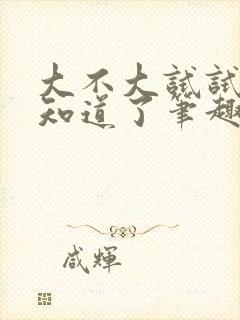 大不大试试
知道了笔趣
咸辉